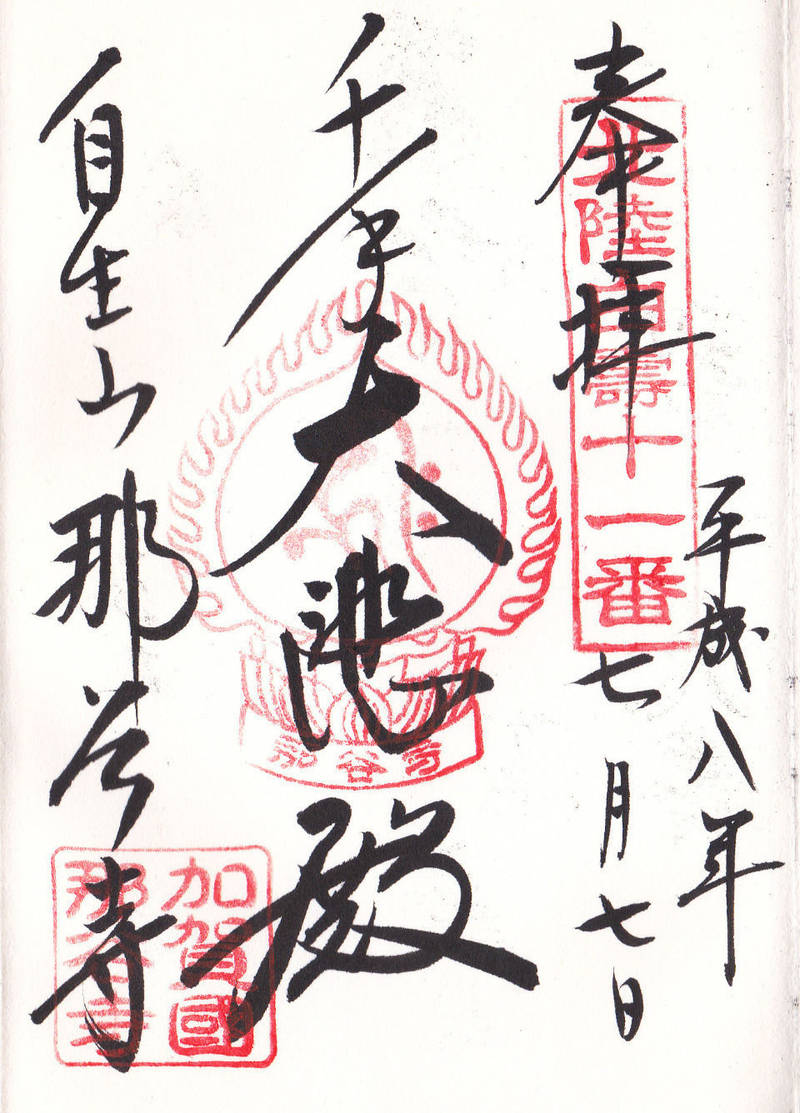 奉拝
北陸白壽十一番
平成八年
七月七日
千手大悲殿
那谷寺
自生山那谷寺
加賀國
那谷寺